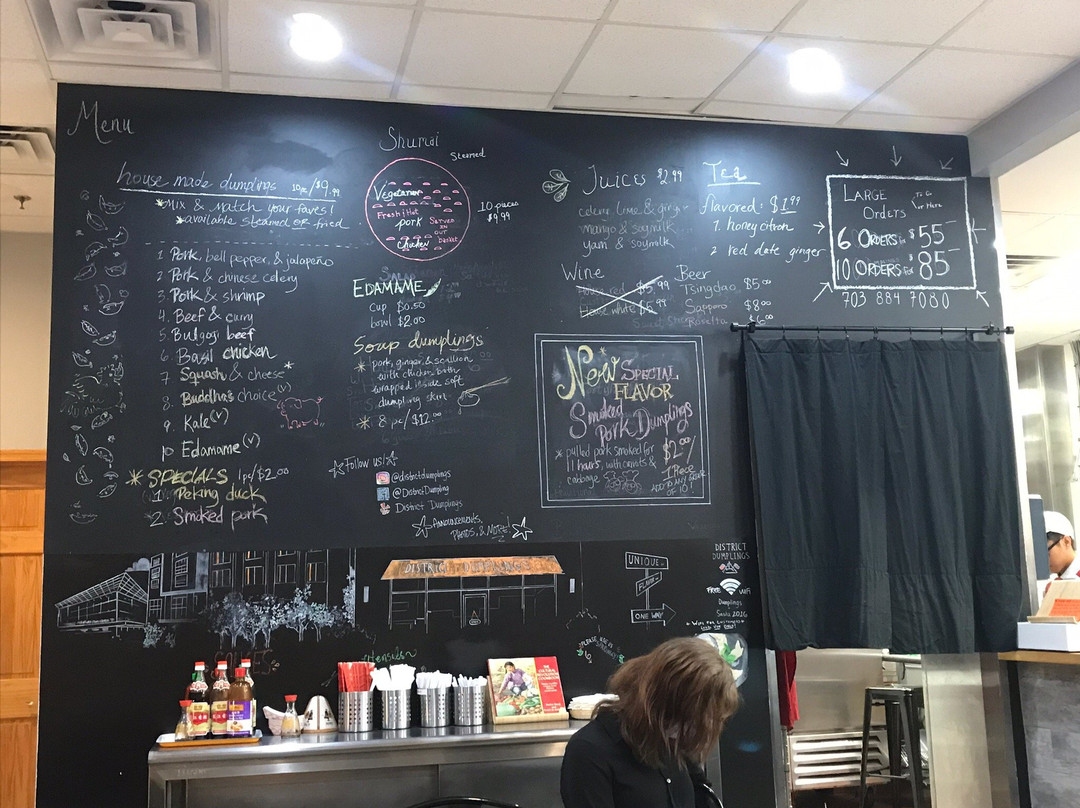 Menu
house made dumplings 10pc/$9.99
*Mix & Match your faves!
*available steamed or fried
1 Pork, bell pepper, & jalapeño
2 Pork & chinese celery
3. Pork & shrimp
4. Beef & curry
5. Bulgogi beef
6. Basil chicken
7 Squash & cheese*
8. Buddha's choice (v)
9. Kale (v)
10 Edamame (v)
* SPECIALS 1pc/$2.00
1. Peking duck
2. Smoked pork
Shumai
Steamed
Vegetarian
Fresh & Hot
Pork
Chicken
SERVED
IN
OUR
BASKET
10 pieces
$9.99
EDAMAME
cup $0.50
bowl $2.00
Soup dumplings
* pork, ginger, & scallion
with chicken broth
wrapped inside soft
dumpling skin
* 8 pc/$12.00
Follow us!
@districtdumplings
@DistrictDumpling
District Dumplings
Announcements,
Photos, & More!
Juices $2.99
celery lime & ginger
mango & soymilk
yam & soymilk
Wine
House red $5.99
House white $5.99
Tea
flavored: $1.99
1. honey citron
2 red date ginger
Beer
Tsingdao $5.00
Sapporo $8.00
LARGE
ORDERS
TO GO
or Here
6 ORDERS for $55
10 ORDERS for $85
703 884 7080
New SPECIAL
FLAVOR
Smoked
Pork Dumplings
* pulled pork smoked for
11 hours, with carrots &
cabbage
$2.00/
1 PIECE
ADD TO ANY ORDER
OF 10!
DISTRICT DUMPLINGS
UNIQUE
FLAVOR
ONE WAY
DISTRICT
DUMPLINGS
FREE WiFi
Dumplings
2016
Utensils